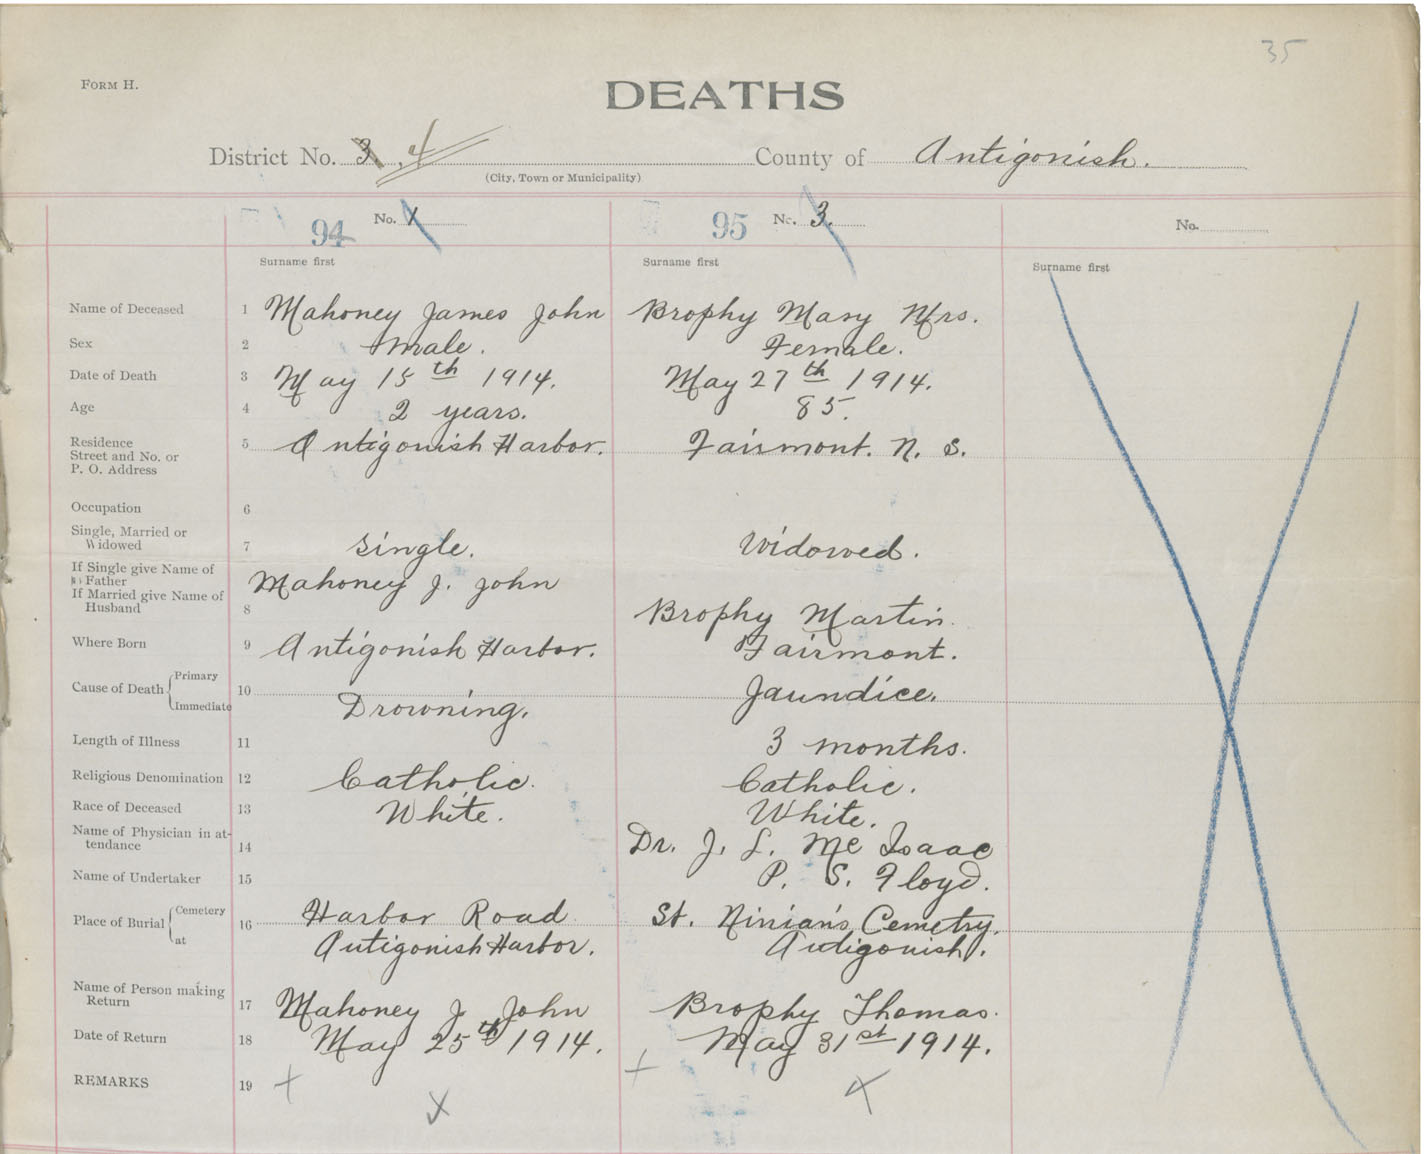 35
FORM H.
DEATHS
District No. 3. 4 County of Antigonish.
(City, Town or Municipality)
94 No. 95 No. 3. No.
Surname first Surname first Surname first
Name of Deceased 1 Mahoney James John Brophy Mary Mrs.
Sex 2 Male. Female.
Date of Death 3 May 15th 1914. May 27th 1914.
Age 4 2 years. 85.
Residence 5 Antigonish Harbor. Fairmont. N. S.
Street and No. or
P. O. Address
Occupation 6
Single, Married or
Widowed 7 Single. Widowed.
If Single give Name of
Father Mahoney J. John
If Married give Name of
Husband 8 Brophy Martin.
Where Born 9 Antigonish Harbor. Fairmont.
Primary
Cause of Death 10 Jaundice.
Immediate Drowning.
Length of Illness 11 3 months.
Religious Denomination 12 Catholic. Catholic.
Race of Deceased 13 White. White.
Name of Physician in at-
tendance 14 Dr. J. L. Mc Isaac
Name of Undertaker 15 P. S. Floyd.
Cemetery
Place of Burial 16 Harbor Road St. Ninian's Cemetry.
at Antigonish Harbor. Antigonish.
Name of Person making
Return 17 Mahoney J. John Brophy Thomas.
Date of Return 18 May 25th 1914. May 31st 1914.
REMARKS 19